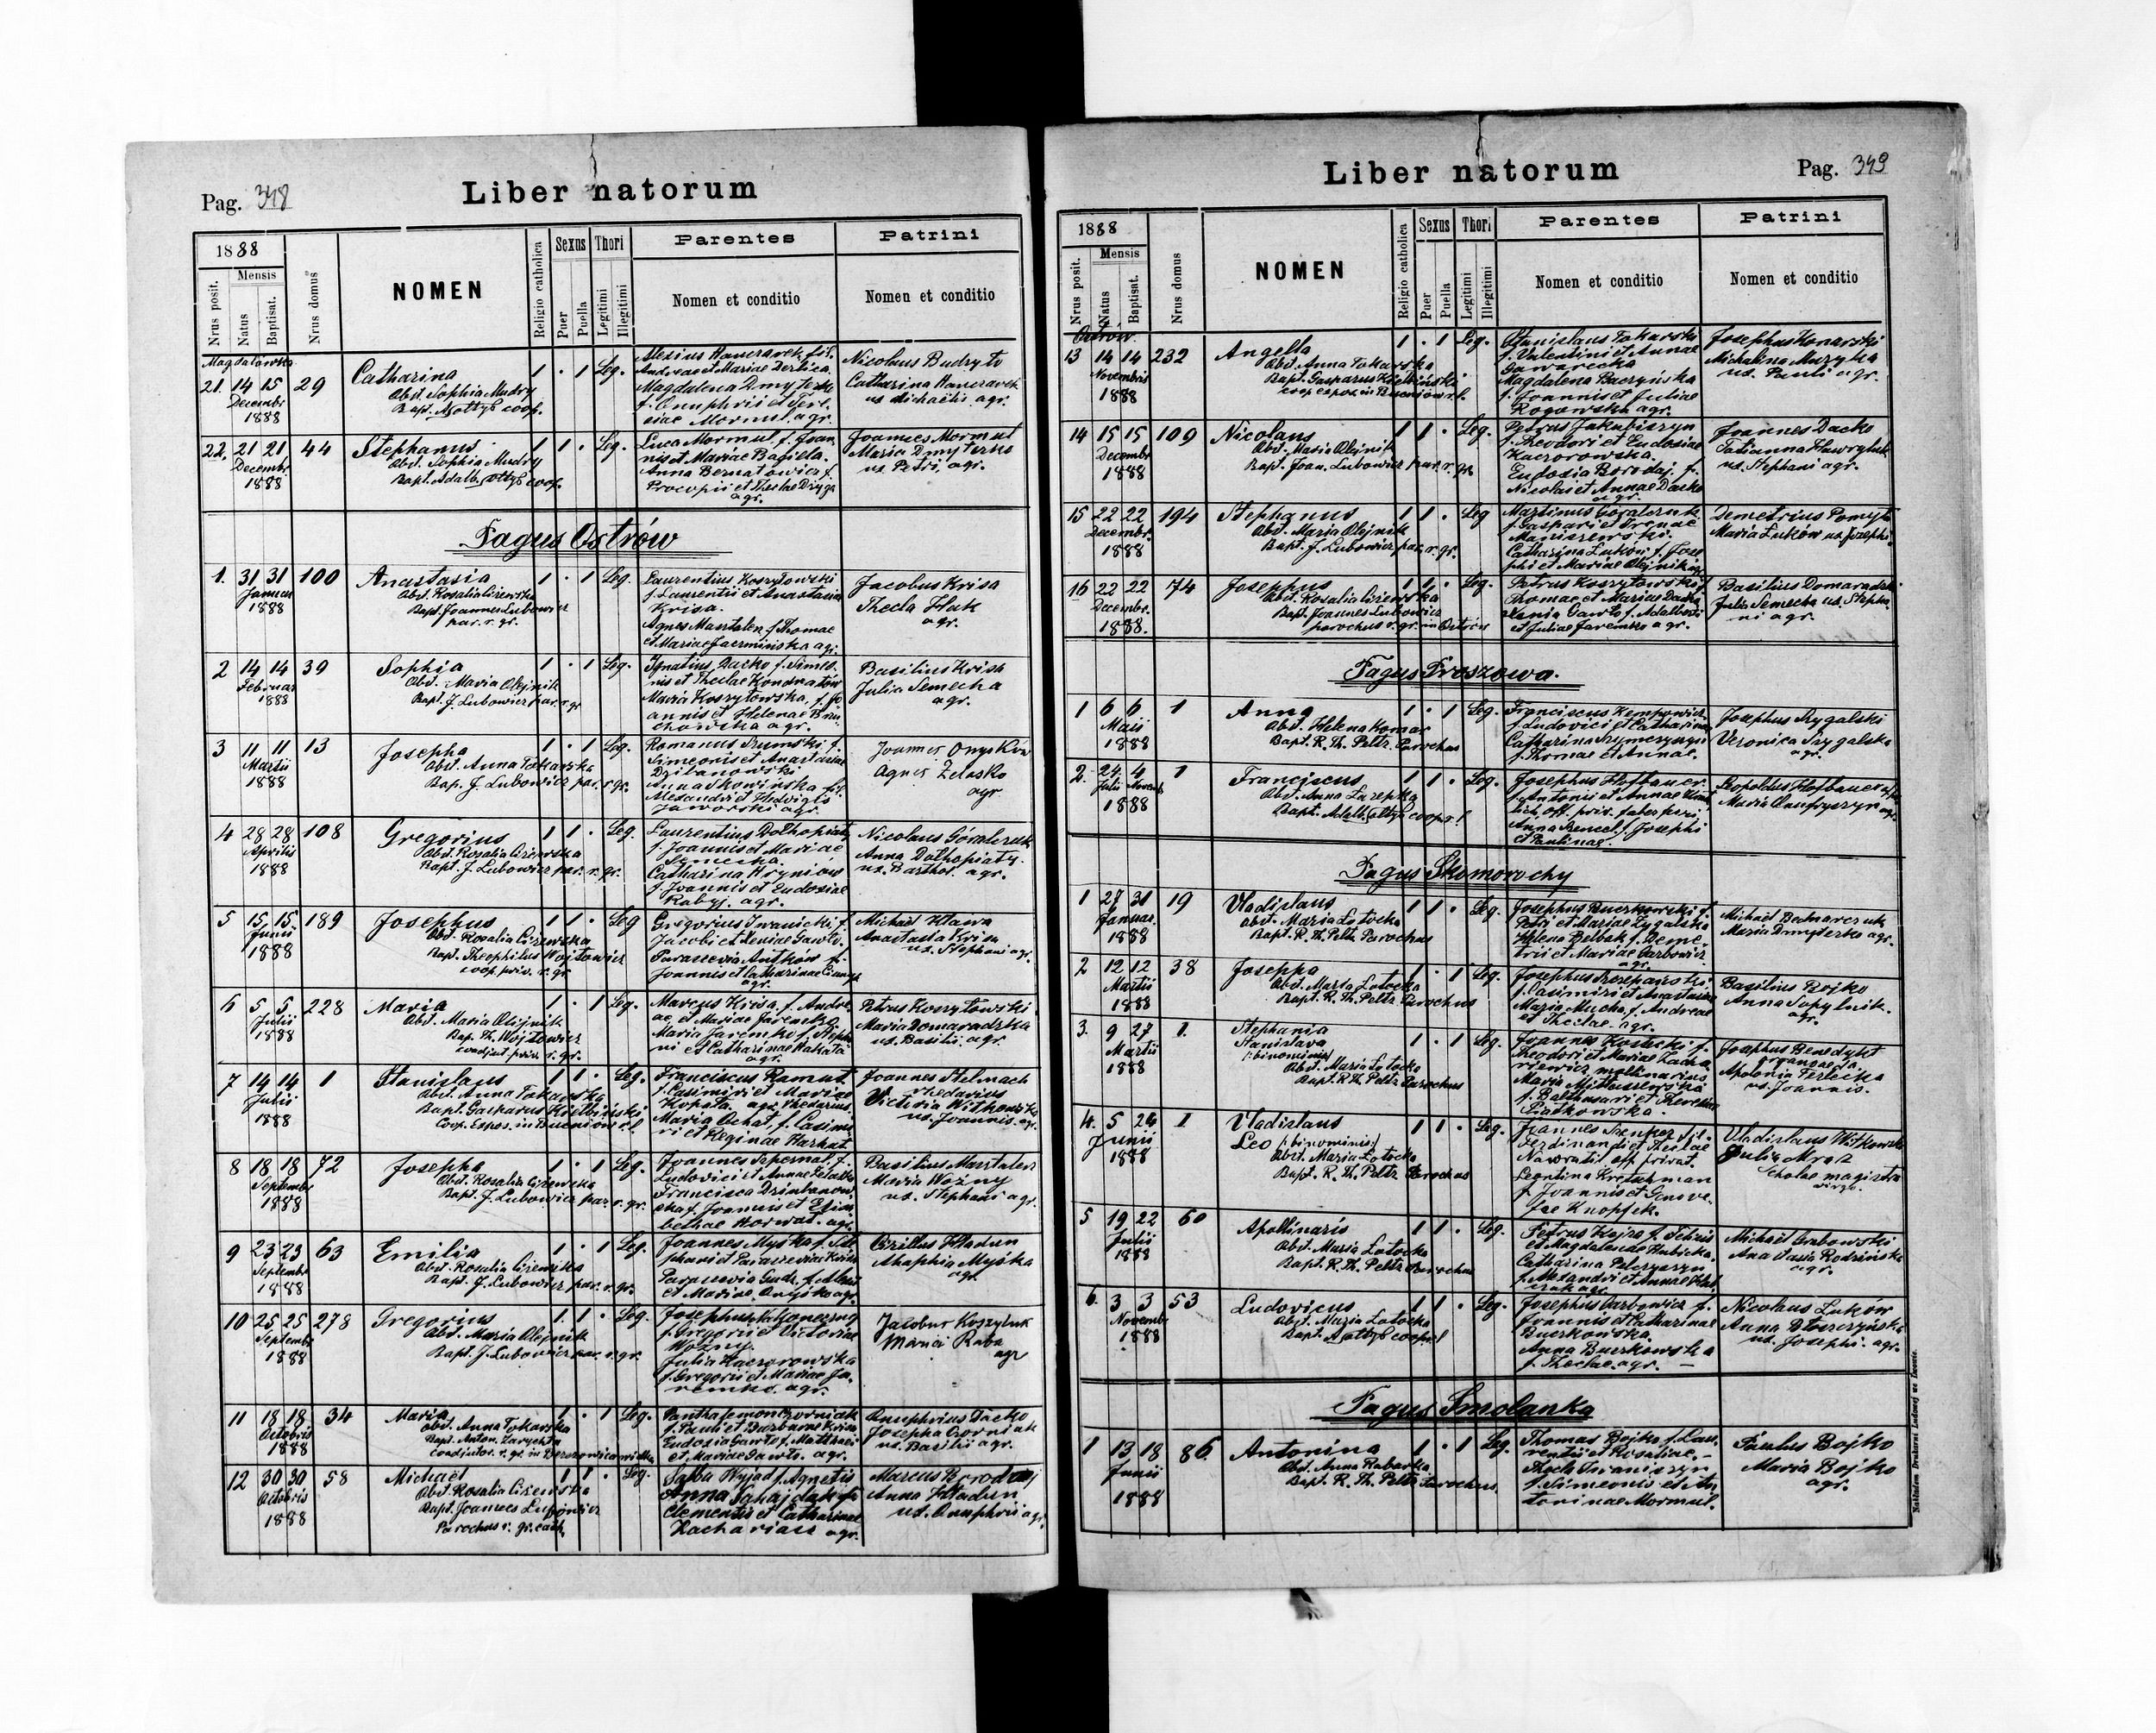 Pag. 348
Liber natorum
1888
Mensis
Nrus posit.
Natus
Baptisat.
Nrus domus
NOMEN
Religio catholica
Sexus
Puer
Puella
Thori
Legitimi
Illegitimi
Parentes
Nomen et conditio
Patrini
Nomen et conditio
Magdalówka
21. 14 15 Decembr 1888 29
Catharina
Obst. Sophia Mudry
Bapt. coop.
1 · 1 Leg.
Andreae et Mariae
Magdalena Dmyterko
f. Onuphrii et
Mormul agr.
Nicolaus Budryto
Catharina
ux Michaelis agr.
22. 21 21 Decembr. 1888 44
Stephanus
Obst. Sophia Mudry
Bapt. Adalb. coop.
1 1 · Leg.
Luca Mormul f. Joan
nis et Mariae Bagiela.
Anna Bernatowicz f.
Procopii et Theclae
agr.
Joannes Mormul
Maria Dmyterko
ux. Petri, agr.
Pagus Ostrów
1. 31 31 Januar 1888 100
Anastasia
Obst. Rosalia Ciżewska
Bapt. Joannes Lubowicz
par. r. gr.
1 · 1 Leg.
Laurentius Koszytowski
f. Laurentii et Anastasia
Krisa.
Agnes Marstalerz f. Thomae
et Mariae agr.
Jacobus Krisa
Thecla Huk
agr.
2 14 14 Februar 1888 39
Sophia
Obst. Maria Olejnik
Bapt. J. Lubowicz par. r. gr
1 · 1 Leg.
Ignatius Dacko f. Simeo
nis et Theclae Kondratów
Maria Koszytowska, f. Jo
annis et Helenae
agr.
Basilius Krisa
Julia Semecha
agr.
3 11 11 Martii 1888 13
Josepha
Obst. Anna Tokarska
Bap. J. Lubowicz par. r. gr.
1 · 1 Leg.
Romanus Szumski f.
Simeonis et Anastasiae
Dzibanowski
Anna fil.
Alexandri et Hedvigis
Jaworski agr.
Joannes
Agnes Żelasko
agr
4 28 28 Aprilis 1888 108
Gregorius
Obst. Rosalia Ciżewska
Bapt. J. Lubowicz par. r. gr.
1 1 · Leg.
Laurentius Dolhopiaty
f. Joannis et Mariae
Semecha.
Catharina Hryniów
f. Joannis et Eudosiae
Rabyj. agr.
Nicolaus Góralczuk
Anna Dolhopiaty.
ux. Barthol. agr.
5 15 15 Junii 1888 189
Josephus
Obst. Rosalia Ciżewska
Bap. Theophilus Wojtowicz
coop. priv. r. gr.
1 1 · Leg
Gregorius Iwanicki f.
Jacobi et Xeniae Gawło.
Parascevia Antków f.
Joannis et Catharinae
agr.
Michael Hlawa
Anastasia Krisa
ux. Stephani agr.
6 5 5 Julii 1888 228
Maria
Obst. Maria Olijnik
Bap. Th. Wojtowicz
coadjut. priv. r. gr.
1 · 1 Leg.
Marcus Krisa f. Andre
ae et Mariae Jaremko
Maria Jaremko f. Stepha
ni et Catharinae
agr.
Petrus Koszytowski
Maria Domaradzka
ux. Basilii agr.
7 14 14 Julii 1888 1
Stanislaus
Obst. Anna Tokarska
Bapt. Gasparus Kiełbiński
Coop. Expos. in Bucniow r. l.
1 1 · Leg.
Franciscus
f. Casimiri et Mariae
Kopała. agr. rhedarius.
Maria Ochat f. Casimi
ri et Reginae
Joannes Stelmach
rhedarius
Victoria Witkowska
ux. Joannis. agr.
8 18 18 Septembr 1888 72
Josepha
Obst. Rosalia Ciżewska
Bapt. J. Lubowicz par. r. gr.
1 · 1 Leg.
Joannes f.
Ludovici et Annae
Francisca Dzimbanow
ska f. Joannis et Elisa
bethae Horwat. agr.
Basilius Marstalerz
Maria Woźny
ux. Stephani agr.
9 23 23 Septembr 1888 63
Emilia
Obst. Rosalia Ciżewska
Bapt. J. Lubowicz par. r. gr.
1 · 1 Leg.
Joannes Myśka f. Ste
phani et Parasceviae Krisa
Parascevia
et Mariae agr.
Cirillus Hladun
Ahaphia Myśka
agr.
10 25 25 Septembr 1888 278
Gregorius
Obst. Maria Olejnik
Bapt. J. Lubowicz par. r. gr.
1 1 · Leg.
Josephus
f. Gregorii et Victoriae
Woźny.
Julia Kaczorowska
f. Gregorii et Mariae Ja
remko. agr.
Jacobus
agr
11 18 18 Octobris 1888 34
Maria
Obst. Anna Tokarska
Bapt. Anton.
coadiutor r. gr. in
1 · 1 Leg.
f. Pauli et Barbarae Krisa
Eudosia Gawło f. Matthaei
et Mariae Gawło. agr.
Onuphrius Dacko
Josepha
ux. Basilii agr.
12 30 30 Octobris 1888 58
Michael
Obst. Rosalia Ciżewska
Bapt. Joannes Lubowicz
Parochus r. gr. cath.
1 1 · Leg.
f. Agnetis
Anna f.
Clementis et Catharinae
Zachariasz agr.
Marcus Borodaj
Anna Hladun
ux. Onuphrii agr.
Liber natorum
Pag. 349
1888
Mensis
Nrus posit.
Natus
Baptisat.
Nrus domus
NOMEN
Religio catholica
Sexus
Puer
Puella
Thori
Legitimi
Illegitimi
Parentes
Nomen et conditio
Patrini
Nomen et conditio
Ostrów
13 14 14 Novembris 1888 232
Angella
Obst. Anna Tokarska
Bapt. Gasparus Kiełbiński
coop. expos. in Bucniów r. l.
1 · 1 Leg.
Stanislaus Tokarski
f. Valentini et Annae
Gawarecka
Magdalena Baczyńska
f. Joannis et Juliae
Rogowska agr.
Josephus Konarski
Michalina Muzyka
ux. Pauli agr.
14 15 15 Decembr 1888 109
Nicolaus
Obst. Maria Olejnik
Bapt. Joan. Lubowicz par. r. gr.
1 1 · Leg.
Petrus Jakubiszyn
f. Theodori et Eudosiae
Kaczorowska.
Eudosia Borodaj f.
Nicolai et Annae Dacko
agr.
Joannes Dacko
Tatianna Hawryluk
ux. Stephani agr.
15 22 22 Decembr. 1888 194
Stephanus
Obst. Maria Olejnik
Bapt. J. Lubowicz par. r. gr.
1 1 · Leg
Martinus Góralczuk
f. Gaspari et Irenae
Maniszewski.
Catharina Luków f. Jose
phi et Mariae Olejnik agr.
Demetrius
Maria Luków ux. Josephi.
16 22 22 Decembr. 1888. 174
Josephus
Obst. Rosalia Ciżewska
Bapt. Joannes Lubowicz
parochus r. gr. in Ostrów
1 1 · Leg.
Petrus Koszytowski f.
Thomae et Mariae Dacko
Xenia Gawło f. Adalberti
et Juliae Jaremko agr.
Basilius Domaradzki
Julia Semecha ux. Stepha
ni agr.
Pagus Proszowa.
1 6 6 Maii 1888 1
Anna
Obst. Helena Komar
Bapt. R. Th. Peltz Parochus
1 · 1 Leg.
Franciscus Kempowicz
f. Ludovici et Catharinae
Catharina
f. Thomae et Annae.
Josephus Rygalski
Veronica Rygalska
agr.
2. 24 Julii 4 Novemb 1888 1
Franciscus
Obst. Anna Łazepka
Bapt. Adalb. coop. r. l
1 1 · Leg.
Josephus Hofbauer.
f. Antonii et Annae
off. priv. faber ferri
Anna f. Josephi
et Paulinae.
Leopoldus Hofbauer
Maria Onufryszyn agr.
Pagus Skomorochy
1 27 31 Januar. 1888 19
Vladislaus
Obst. Maria Łotocka
Bapt. R. Th. Peltz Parochus
1 1 · Leg.
Josephus Buczkowski f.
Petri et Mariae Zygalska
Helena f. Deme
trii et Mariae Karbowicz
agr.
Michael Bednarczuk
Maria Dmyterko agr.
2 12 12 Martii 1888 38
Josepha
Obst. Maria Łotocka
Bapt. R. Th. Peltz Parochus
1 · 1 Leg.
Josephus Szczepański
f. Casimiri et Anastasiae
Maria Mucha, f. Andreae
et Theclae. agr.
Basilius Bojko
Anna
agr.
3. 9 27 Martii 1888 1.
Stephania
Stanislava
/: binominis/
Obst. Maria Łotocka
Bapt. R. Th. Peltz Parochus
1 · 1 Leg.
Joannes Kostecki f.
Theodori et Mariae Zacha
riewicz molinarius
Maria
f. Balthasari et Theresiae
Piątkowska.
Josephus Benedykt
organareda.
Apolonia Terlecka
ux. Joannis.
4. 5 24 Junii 1888 1
Vladislaus
Leo /: binominis:/
Obst. Maria Łotocka
Bapt. R. Th. Peltz Parochus
1 1 · Leg.
Joannes fil.
Ferdinandi et Theclae
Nawratil off. privat.
Leontina Kretschman
f. Joannis et Genove
fae Knopfek.
Vladislaus Witkowski
Julia Mroz
scholae magistra
virgo.
5 19 22 Julii 1888 60
Apollinaris
Obst. Maria Łotocka
Bapt. R. Th. Peltz Parochus
1 1 · Leg.
Petrus f. Felicis
et Magdalenae Kubicka.
Catharina
f. Alexandri et Annae
agr.
Michael Grabowski
Anastasia Rodzińska
agr.
6. 3 3 Novembr 1888 53
Ludovicus
Obst. Maria Łotocka
Bapt. coop. r. l
1 1 · Leg.
Josephus Karbowicz f.
Joannis et Catharinae
Buczkowska.
Anna Buczkowska
f. Theclae agr. —
Nicolaus Luków
Anna
ux. Josephi. agr.
Pagus Smolanka
1 13 18 Junii 1888 86
Antonina
Obst. Anna Rabarka
Bapt. R. Th. Peltz Parochus
1 · 1 Leg.
Thomas Bojko f. Lau
rentii et Rosaliae. —
Thecla Iwaniszyn
f. Simeonis et An
toninae Mormul.
Paulus Bojko
Maria Bojko
agr.
Nakładem Drukarni Ludowej we Lwowie.